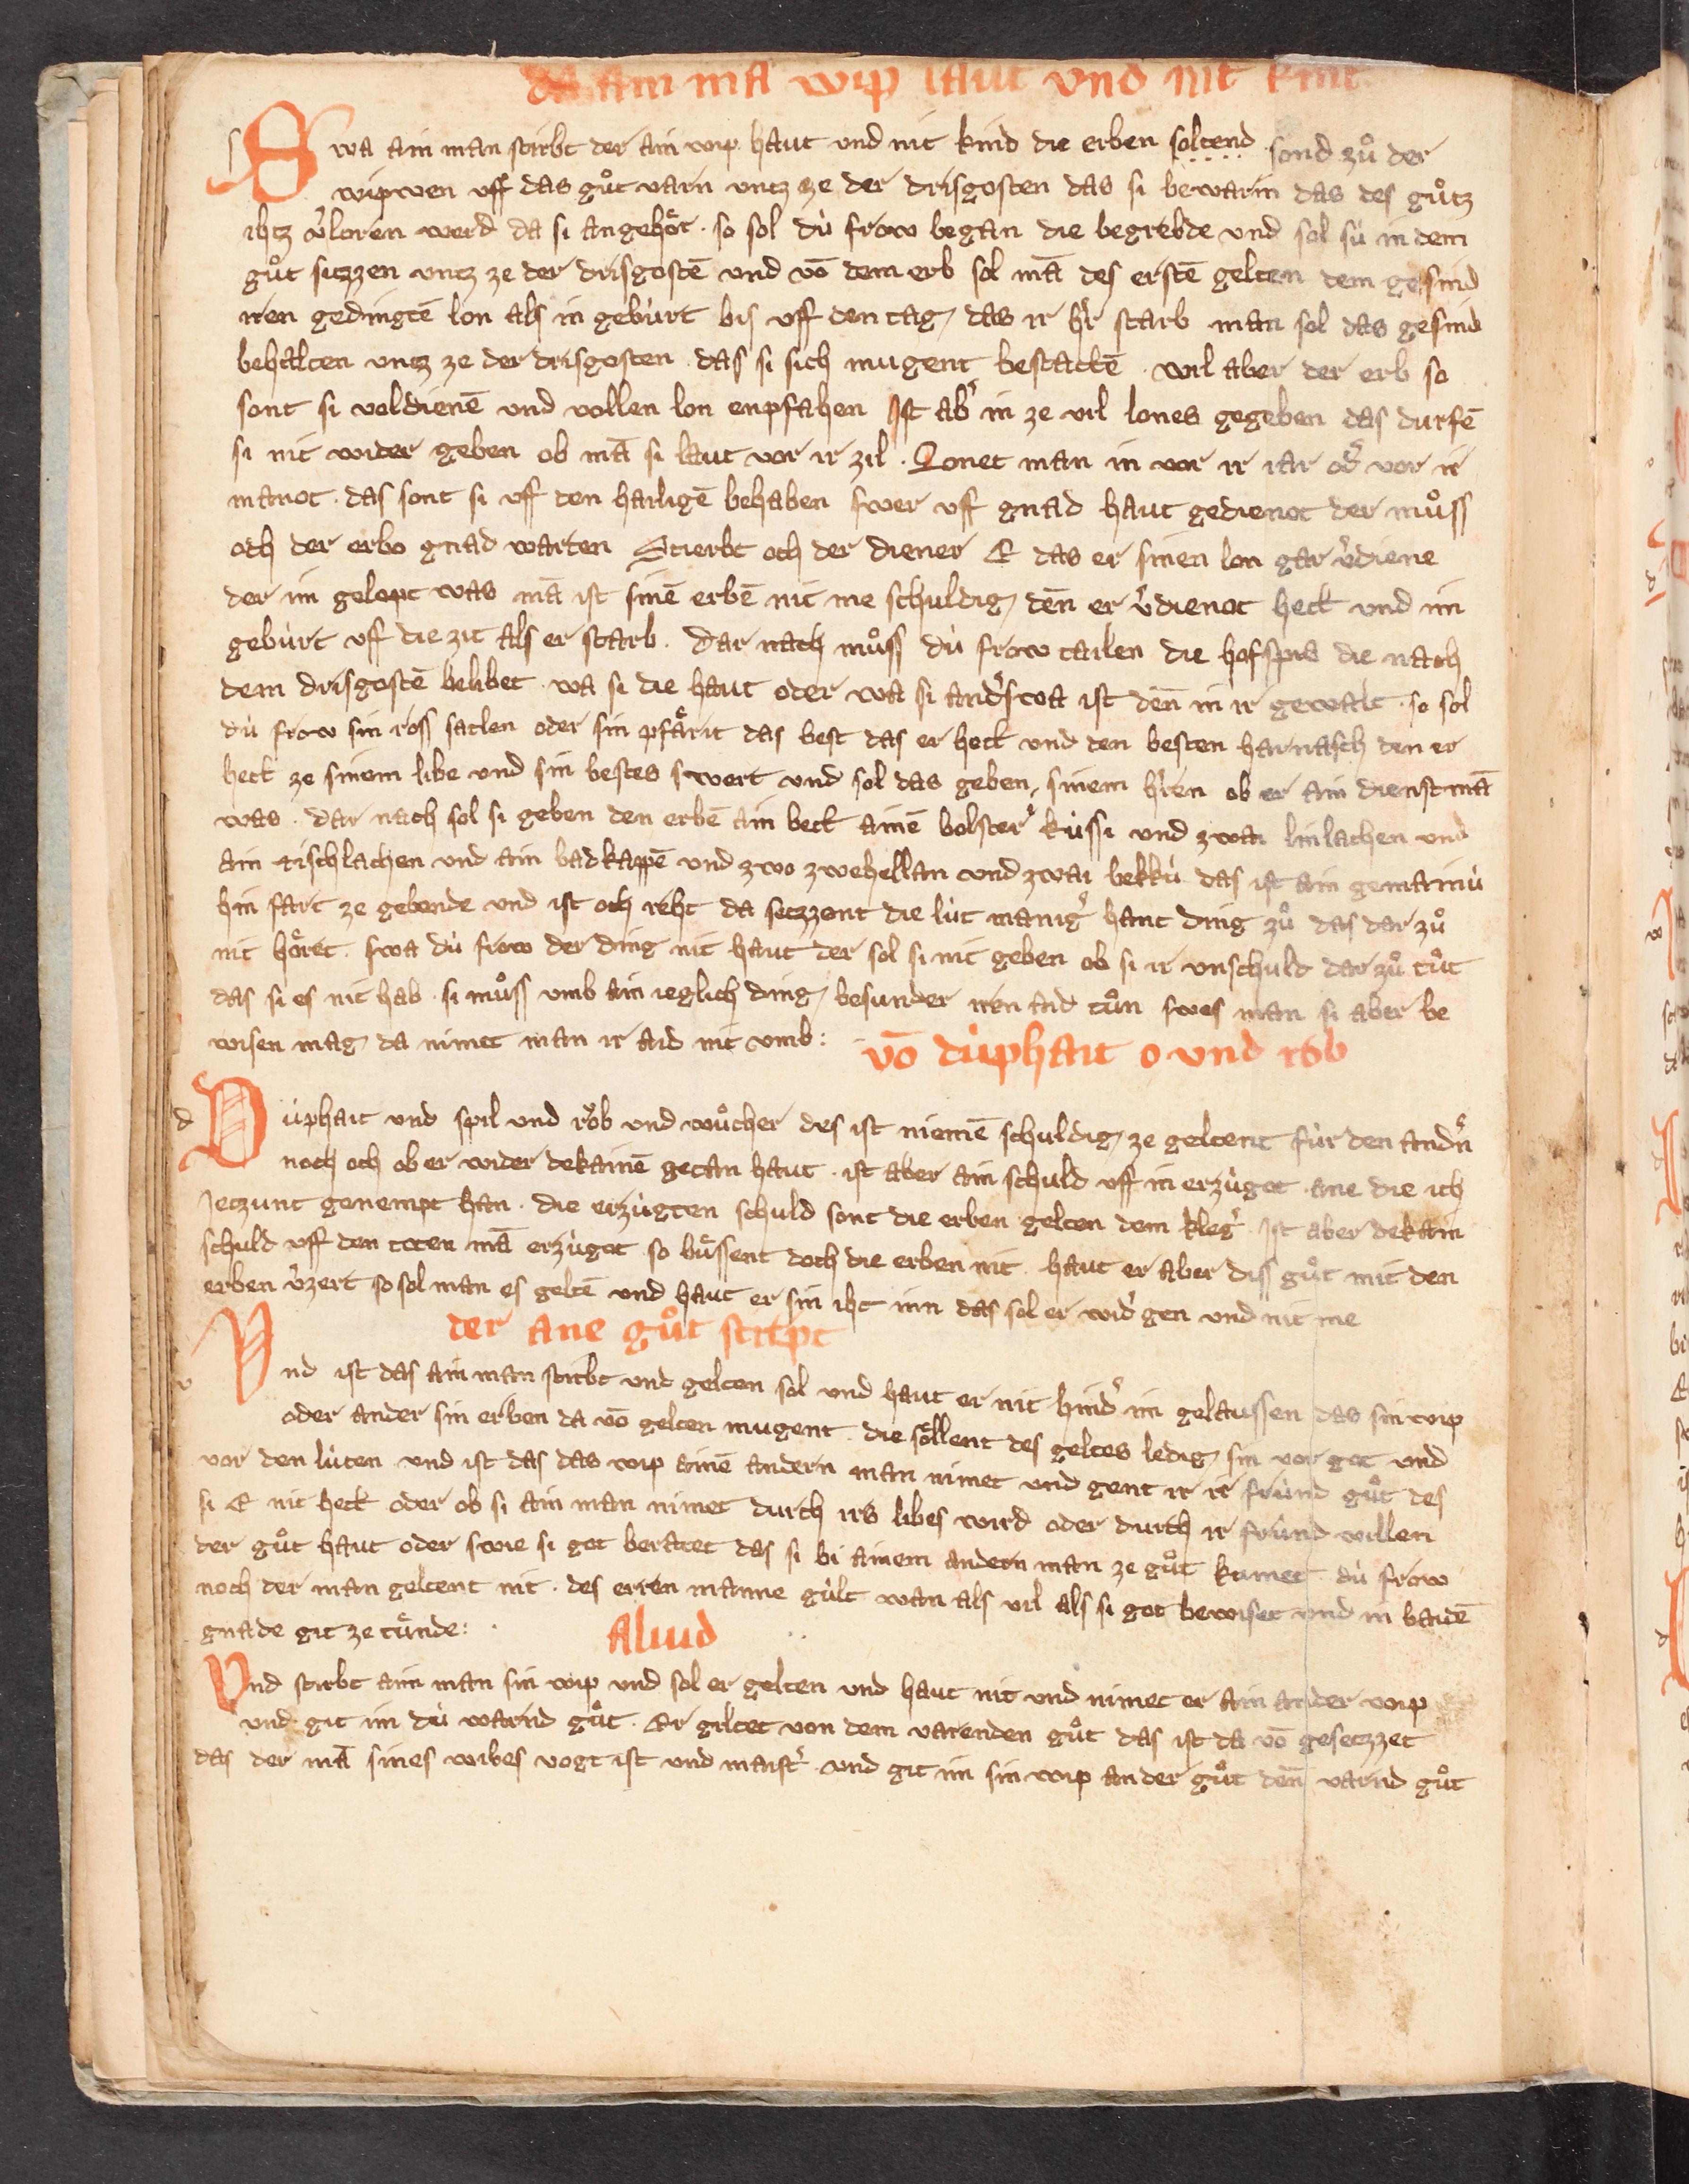 da ain mā wip haut vnd nit kint
s Swa ain man stirbt der ain wip haut vnd nit kind die erben soltend sond zuͦ der
wipwen vff das guͦt varn vntz ze der drisgosten das si bewarin das des guͦtz
ihtz v̓loren werd da si angehoͤrt · so sol dù frow began die begrebde vnd sol sù in dem
guͦt sitzzen vntz ze der drisgostē vnd vō dem erb sol mā des erstē gelten dem gesind
iren gedingtē lon als in gebùrt bis vff den tag das ir h̓r starb man sol das gesind
behalten vntz ze der drisgosten das si sich mugent bestattē · wil aber der erb so
sont si voldienē vnd vollen lon enpfahen Ist ab̓ in ze vil lones gegeben das durfē
si nit wider geben ob mā si laut vor ir zil · Lonet man in vor ir iar od̓ vor ir
manot · das sont si vff den hailigē behaben swer vff gnad haut gedienot der muͦss
och der erbo gnad warten Stierbt och der diener E das er sinen lon gar v̓diene
der im gelopt was mā ist sinē erbē nit me schuldig den̄ er v̓dienot hett vnd im
gebùrt vff die zit als er starb · Dar nach muͦss dù frow tailen die hofspis die nach
dem drisgostē belibet · wa si die haut oder wa si and̓swa ist den̄ in ir gewalt · so sol
dù frow sin ross satlen oder sin pfaͤrit das best das er hett vnd den besten harnasch den er
hett ze sinem libe vnd sin bestes swert vnd sol das geben sinem h̓ren ob er ain dienstmā
was · dar nach sol si geben den erbē ain bett ainē bolster kùssi vnd zwai linlachen vnd
ain tischlachen vnd ain badkappē vnd zwo zwehellan vnd zwai bekkù das ist ain gemainù
hin fart ze gebende vnd ist och reht da setzzent die lùt manig̓ hant ding zuͦ das dar zuͦ
nit hoͤret · swa dù frow der ding nit haut der sol si nit geben ob si ir vnschuld dar zuͦ tuͦt
das si es nit hab · si muͦss vmb ain ieglich ding besunder iren aid tuͦn swes man si aber be
wisen mag da nimet man ir aid nit vmb :
vō dùphait o vnd rob
d Dùphait vnd spil vnd roͮb vnd wuͦcher des ist niemē schuldig ze geltent fùr den and̓n
noch och ob er wider dekainē getan haut · ist aber ain schuld vff in erzùget · ane die ich
Jetzunt genempt han · die erzùgten schuld sont die erben gelten dem kleg̓ ist aber dekain
schuld vff den toten mā erzùgot so buͤssent doch die erben nit · haut er aber diss guͦt mit den
erben v̓zert so sol man es geltē vnd haut er sin iht inn das sol er wid̓ gen vnd nit me
der ane guͦt stirpt
v Vnd ist das ain man stirbt vnd gelten sol vnd haut er nit hind̓ im gelaussen das sin wip
oder ander sin erben da vō gelten mugent · die soͤllent des geltes ledig sin vor got vnd
vor den lùten vnd ist das das wip ainē andern man nimet vnd gent ir ir frùnd guͦt des
si E nit hett oder ob si ain man nimet durch irs libes wird oder durch ir frùnd willen
der guͦt haut oder swie si got beratet das si bi ainem andern man ze guͦt kumet dù frow
noch der man geltent nit · des erren manne gùlt wan als vil als si got bewiset vnd in baidē
gnade git ze tuͤnde :
Aliud
Vnd stirbt aim man sin wip vnd sol er gelten vnd haut nit vnd nimet er ain ander wip
vnd git im dù warnd guͦt · Er giltet von dem varenden guͦt das ist da vō gesetzzet
das der mā sines wibes vogt ist vnd maist̓ · vnd git im sin wip ander guͦt den̄ varnd guͦt